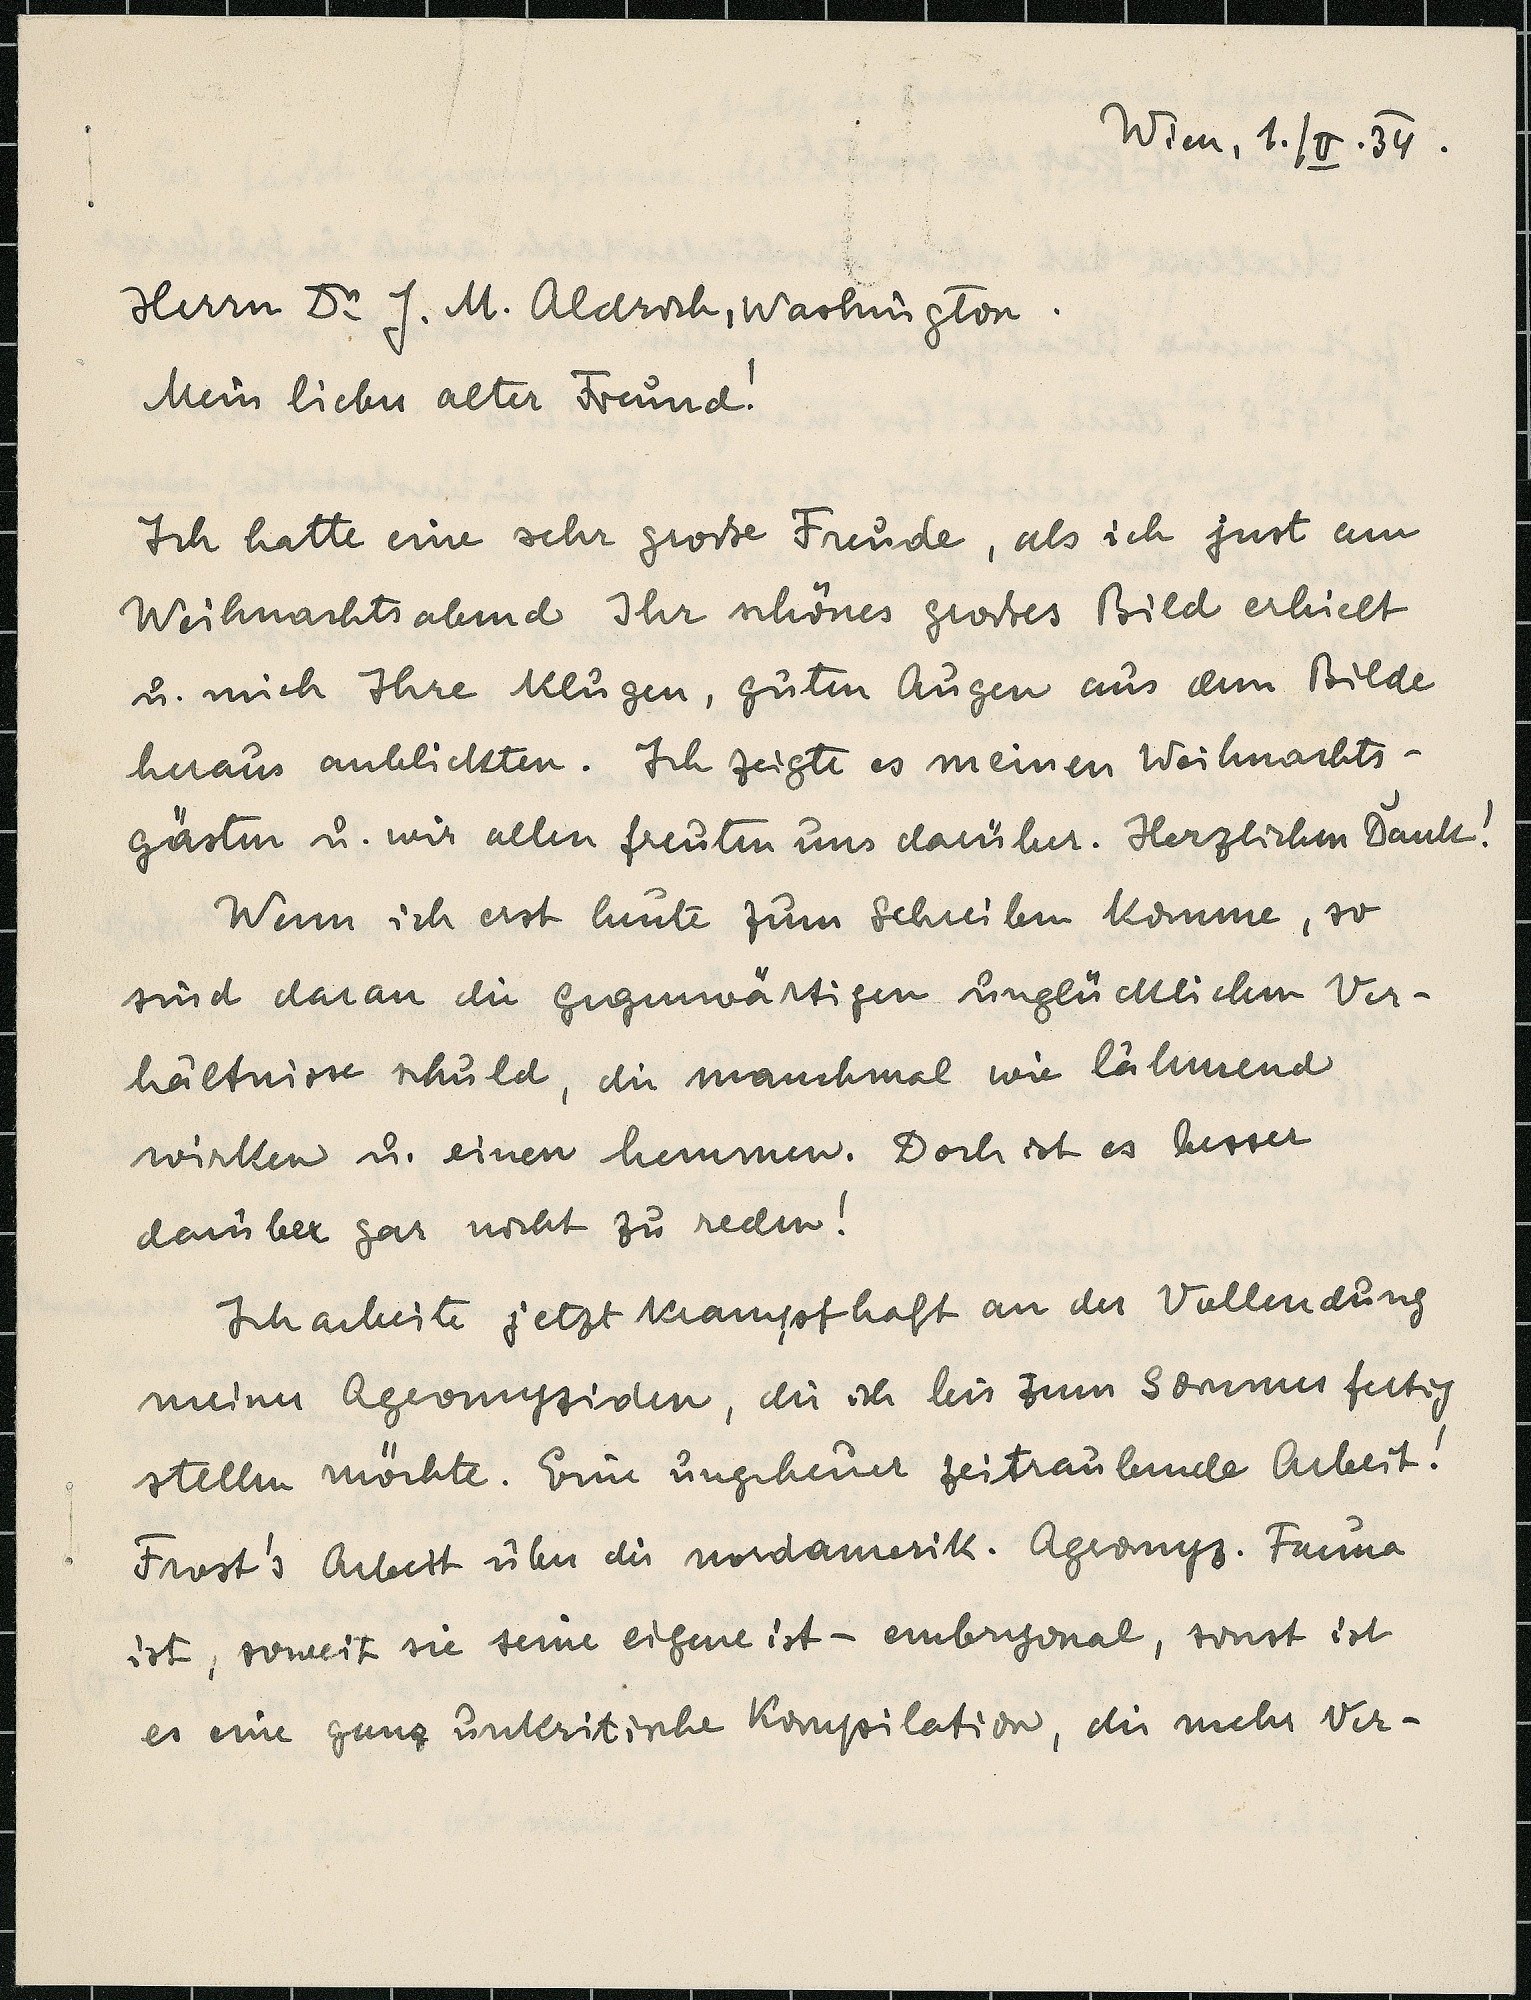 Wien, 1./II.34.
Herrn Dr J. M. Aldrich, Washington.
Mein lieber alter Freund!
Ich hatte eine sehr große Freude, als ich just am
Weihnachtsabend Ihr schönes großes Bild erhielt
u. mich Ihre klugen, guten Augen aus dem Bilde
heraus anblickten. Ich zeigte es meinen Weihnachts-
gästen u. wir allen freuten uns darüber. Herzlichen Dank!
Wenn ich erst heute zum Schreiben komme, so
sind daran die gegenwärtigen unglücklichen Ver-
hältnisse schuld, die manchmal wie lähmend
wirken u. einen hemmen. Doch ist es besser
darüber gar nicht zu reden!
Ich arbeite jetzt krampfhaft an der Vollendung
meiner Agromyziden, die ich bis zum Sommer fertig
stellen möchte. Eine ungeheuer zeitraubende Arbeit!
Frost's Arbeit über die nordamerik. Agromyz. Fauna
ist, soweit sie seine eigene ist - embryonal, sonst ist
es eine ganz unkritische Kompilation, die mehr Ver-